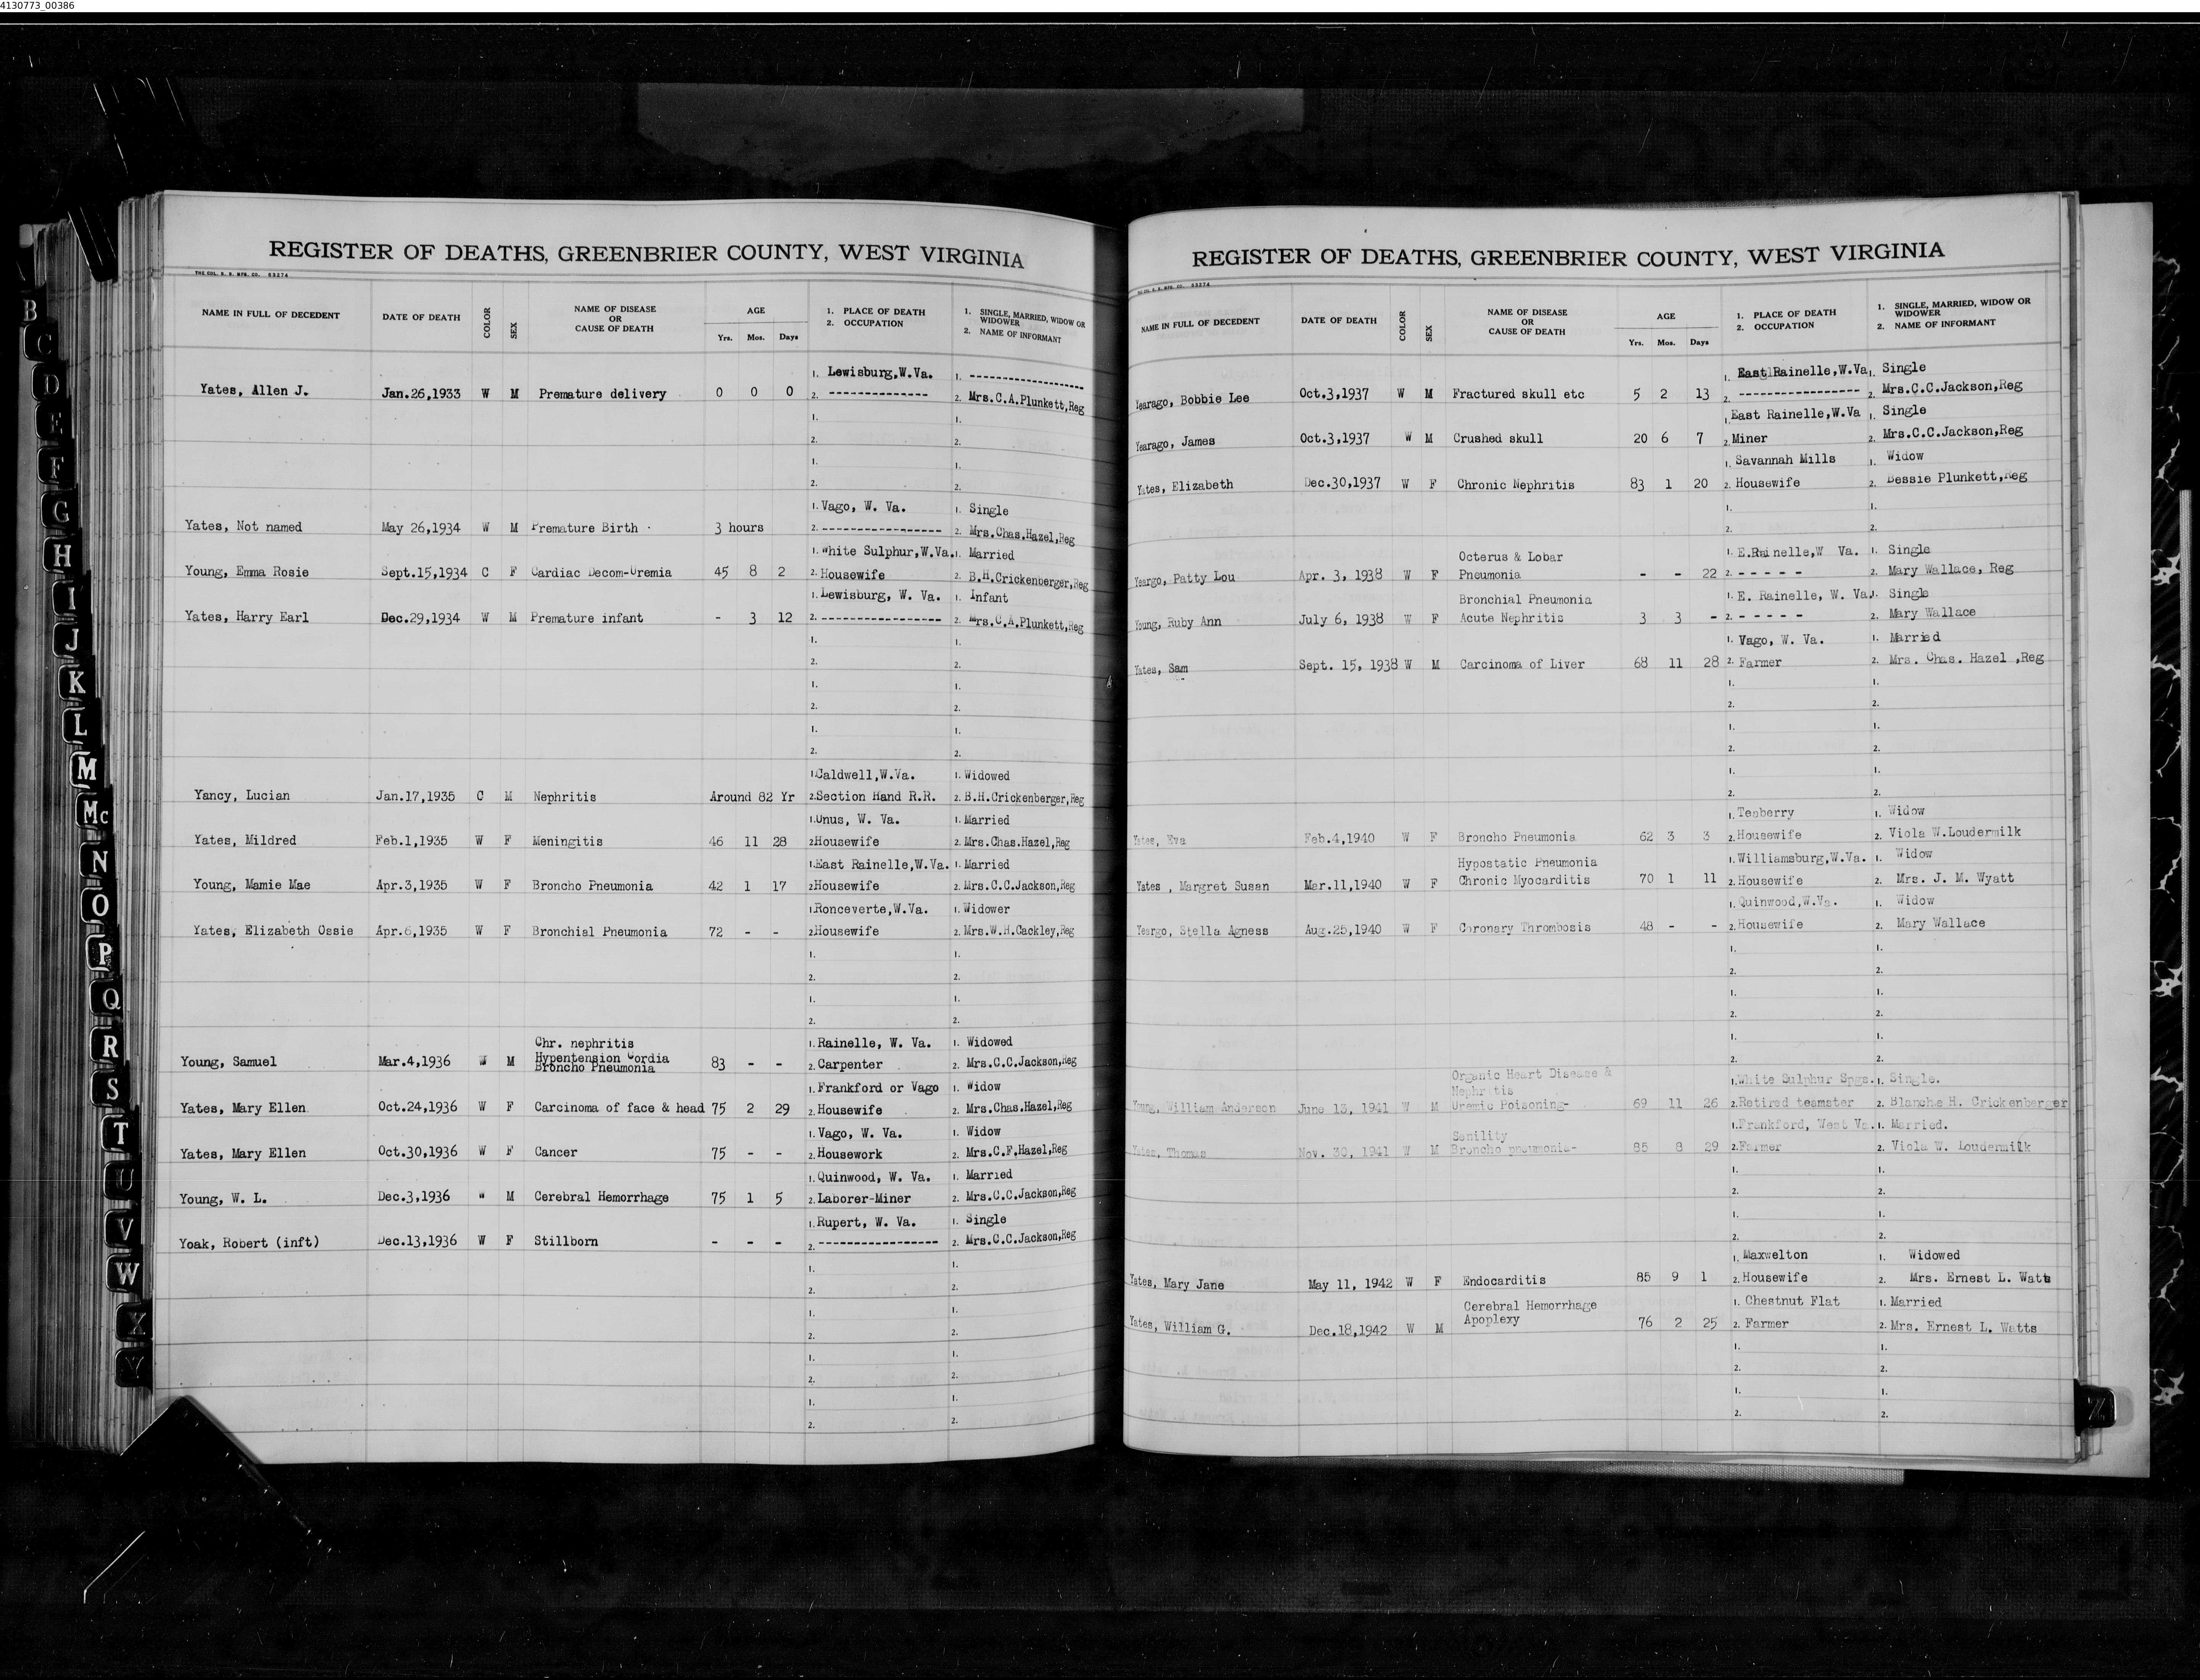 4130773_00386
B
C
D
E
F
G
H
I
J
K
L
M
Mc
N
O
P
Q
R
S
T
U
V
W
X
Y
REGISTER OF DEATHS, GREENBRIER COUNTY, WEST VIRGINIA
THE COL. B. B. MFG. CO. 53274
NAME IN FULL OF DECEDENT DATE OF DEATH COLOR SEX NAME OF DISEASE OR CAUSE OF DEATH AGE Yrs. Mos. Days 1. PLACE OF DEATH 2. OCCUPATION 1. SINGLE, MARRIED, WIDOW OR WIDOWER 2. NAME OF INFORMANT
1. Lewisburg,W.Va. 1. ------------------
Yates, Allen J. Jan.26,1933 W M Premature delivery 0 0 0 2. -------------- 2. Mrs.C.A.Plunkett,Reg
1. 1.
2. 2.
1. 1.
2. 2.
1. Vago, W. Va. 1. Single
Yates, Not named May 26,1934 W M Premature Birth 3 hours 2. ----------------- 2. Mrs.Chas.Hazel,Reg
1. White Sulphur,W.Va. 1. Married
Young, Emma Rosie Sept.15,1934 C F Cardiac Decom-Uremia 45 8 2 2. Housewife 2. B.H.Crickenberger,Reg
1. Lewisburg, W. Va. 1. Infant
Yates, Harry Earl Dec.29,1934 W M Premature infant - 3 12 2. ----------------- 2. Mrs.C.A.Plunkett,Reg
1. 1.
2. 2.
1. 1.
2. 2.
1. 1.
2. 2.
1. Caldwell,W.Va. 1. Widowed
Yancy, Lucian Jan.17,1935 C M Nephritis Around 82 Yr 2. Section Hand R.R. 2. B.H.Crickenberger,Reg
1. Unus, W. Va. 1. Married
Yates, Mildred Feb.1,1935 W F Meningitis 46 11 28 2. Housewife 2. Mrs.Chas.Hazel,Reg
1. East Rainelle,W.Va. 1. Married
Young, Mamie Mae Apr.3,1935 W F Broncho Pneumonia 42 1 17 2. Housewife 2. Mrs.C.C.Jackson,Reg
1. Ronceverte,W.Va. 1. Widower
Yates, Elizabeth Ossie Apr.6,1935 W F Bronchial Pneumonia 72 - - 2. Housewife 2. Mrs.W.H.Cackley,Reg
1. 1.
2. 2.
1. 1.
2. 2.
Chr. nephritis 1. Rainelle, W. Va. 1. Widowed
Hypentension Cordia
Young, Samuel Mar.4,1936 W M Broncho Pneumonia 83 - - 2. Carpenter 2. Mrs.C.C.Jackson,Reg
1. Frankford or Vago 1. Widow
Yates, Mary Ellen Oct.24,1936 W F Carcinoma of face & head 75 2 29 2. Housewife 2. Mrs.Chas.Hazel,Reg
1. Vago, W. Va. 1. Widow
Yates, Mary Ellen Oct.30,1936 W F Cancer 75 - - 2. Housework 2. Mrs.C.F.Hazel,Reg
1. Quinwood, W. Va. 1. Married
Young, W. L. Dec.3,1936 W M Cerebral Hemorrhage 75 1 5 2. Laborer-Miner 2. Mrs.C.C.Jackson,Reg
1. Rupert, W. Va. 1. Single
Yoak, Robert (inft) Dec.13,1936 W F Stillborn - - - 2. ----------------- 2. Mrs.C.C.Jackson,Reg
1. 1.
2. 2.
1. 1.
2. 2.
1. 1.
2. 2.
1. 1.
2. 2.
REGISTER OF DEATHS, GREENBRIER COUNTY, WEST VIRGINIA
THE COL. B. B. MFG. CO. 53274
NAME IN FULL OF DECEDENT DATE OF DEATH COLOR SEX NAME OF DISEASE OR CAUSE OF DEATH AGE Yrs. Mos. Days 1. PLACE OF DEATH 2. OCCUPATION 1. SINGLE, MARRIED, WIDOW OR WIDOWER 2. NAME OF INFORMANT
1. East Rainelle,W.Va 1. Single
Yearago, Bobbie Lee Oct.3,1937 W M Fractured skull etc 5 2 13 2. ----------------- 2. Mrs.C.C.Jackson,Reg
1. East Rainelle,W.Va 1. Single
Yearago, James Oct.3,1937 W M Crushed skull 20 6 7 2. Miner 2. Mrs.C.C.Jackson,Reg
1. Savannah Mills 1. Widow
Yates, Elizabeth Dec.30,1937 W F Chronic Nephritis 83 1 20 2. Housewife 2. Bessie Plunkett,Reg
1. 1.
2. 2.
Octerus & Lobar 1. E.Rainelle,W Va. 1. Single
Yeargo, Patty Lou Apr. 3, 1938 W F Pneumonia - - 22 2. - - - - - 2. Mary Wallace, Reg
Bronchial Pneumonia 1. E. Rainelle, W. Va. 1. Single
Young, Ruby Ann July 6, 1938 W F Acute Nephritis 3 3 - 2. - - - - - 2. Mary Wallace
1. Vago, W. Va. 1. Married
Yates, Sam Sept. 15, 1938 W M Carcinoma of Liver 68 11 28 2. Farmer 2. Mrs. Chas. Hazel ,Reg
1. 1.
2. 2.
1. 1.
2. 2.
1. 1.
2. 2.
1. Teaberry 1. Widow
Yates, Eva Feb.4,1940 W F Broncho Pneumonia 62 3 3 2. Housewife 2. Viola W.Loudermilk
Hypostatic Pneumonia 1. Williamsburg,W.Va. 1. Widow
Yates , Margret Susan Mar.11,1940 W F Chronic Myocarditis 70 1 11 2. Housewife 2. Mrs. J. M. Wyatt
1. Quinwood,W.Va. 1. Widow
Yeargo, Stella Agness Aug.25,1940 W F Coronary Thrombosis 48 - - 2. Housewife 2. Mary Wallace
1. 1.
2. 2.
1. 1.
2. 2.
1. 1.
2. 2.
Organic Heart Disease & 1. White Sulphur Spgs. 1. Single.
Nephritis
Young, William Anderson June 13, 1941 W M Uremic Poisoning- 69 11 26 2. Retired teamster 2. Blanche H. Crickenberger
Senility 1. Frankford, West Va. 1. Married.
Yates, Thomas Nov. 30, 1941 W M Broncho pneumonia- 85 8 29 2. Farmer 2. Viola W. Loudermilk
1. 1.
2. 2.
1. 1.
2. 2.
1. Maxwelton 1. Widowed
Yates, Mary Jane May 11, 1942 W F Endocarditis 85 9 1 2. Housewife 2. Mrs. Ernest L. Watts
Cerebral Hemorrhage 1. Chestnut Flat 1. Married
Yates, William G. Dec.18,1942 W M Apoplexy 76 2 25 2. Farmer 2. Mrs. Ernest L. Watts
1. 1.
2. 2.
1. 1.
2. 2.
Z